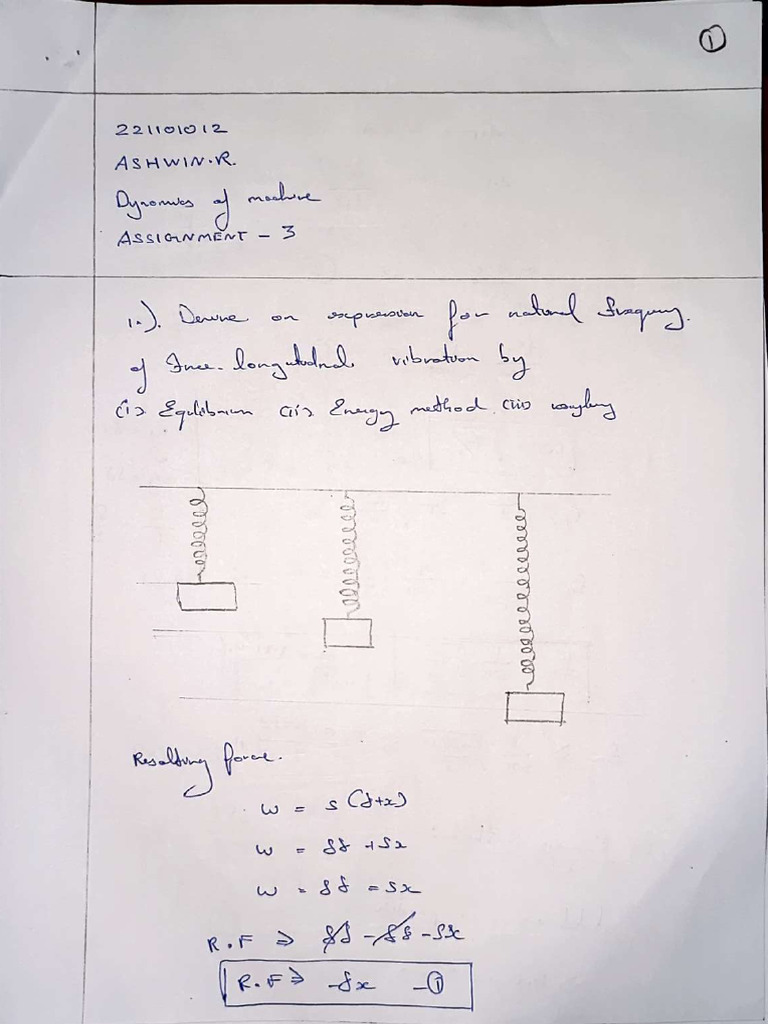 ①
221101012
ASHWIN.R.
Dynamics of machine
ASSIGNMENT - 3
1.). Derive an expression for natural frequency.
of Free longitudnal vibration by
(i) Equlibrium (ii) Energy method (iii)
Resolting force.
W = s (δ+x)
W = sδ + sx
W = sδ = sx
R.F ⇒ sδ - sδ - sx
R.F ⇒ -sx -①